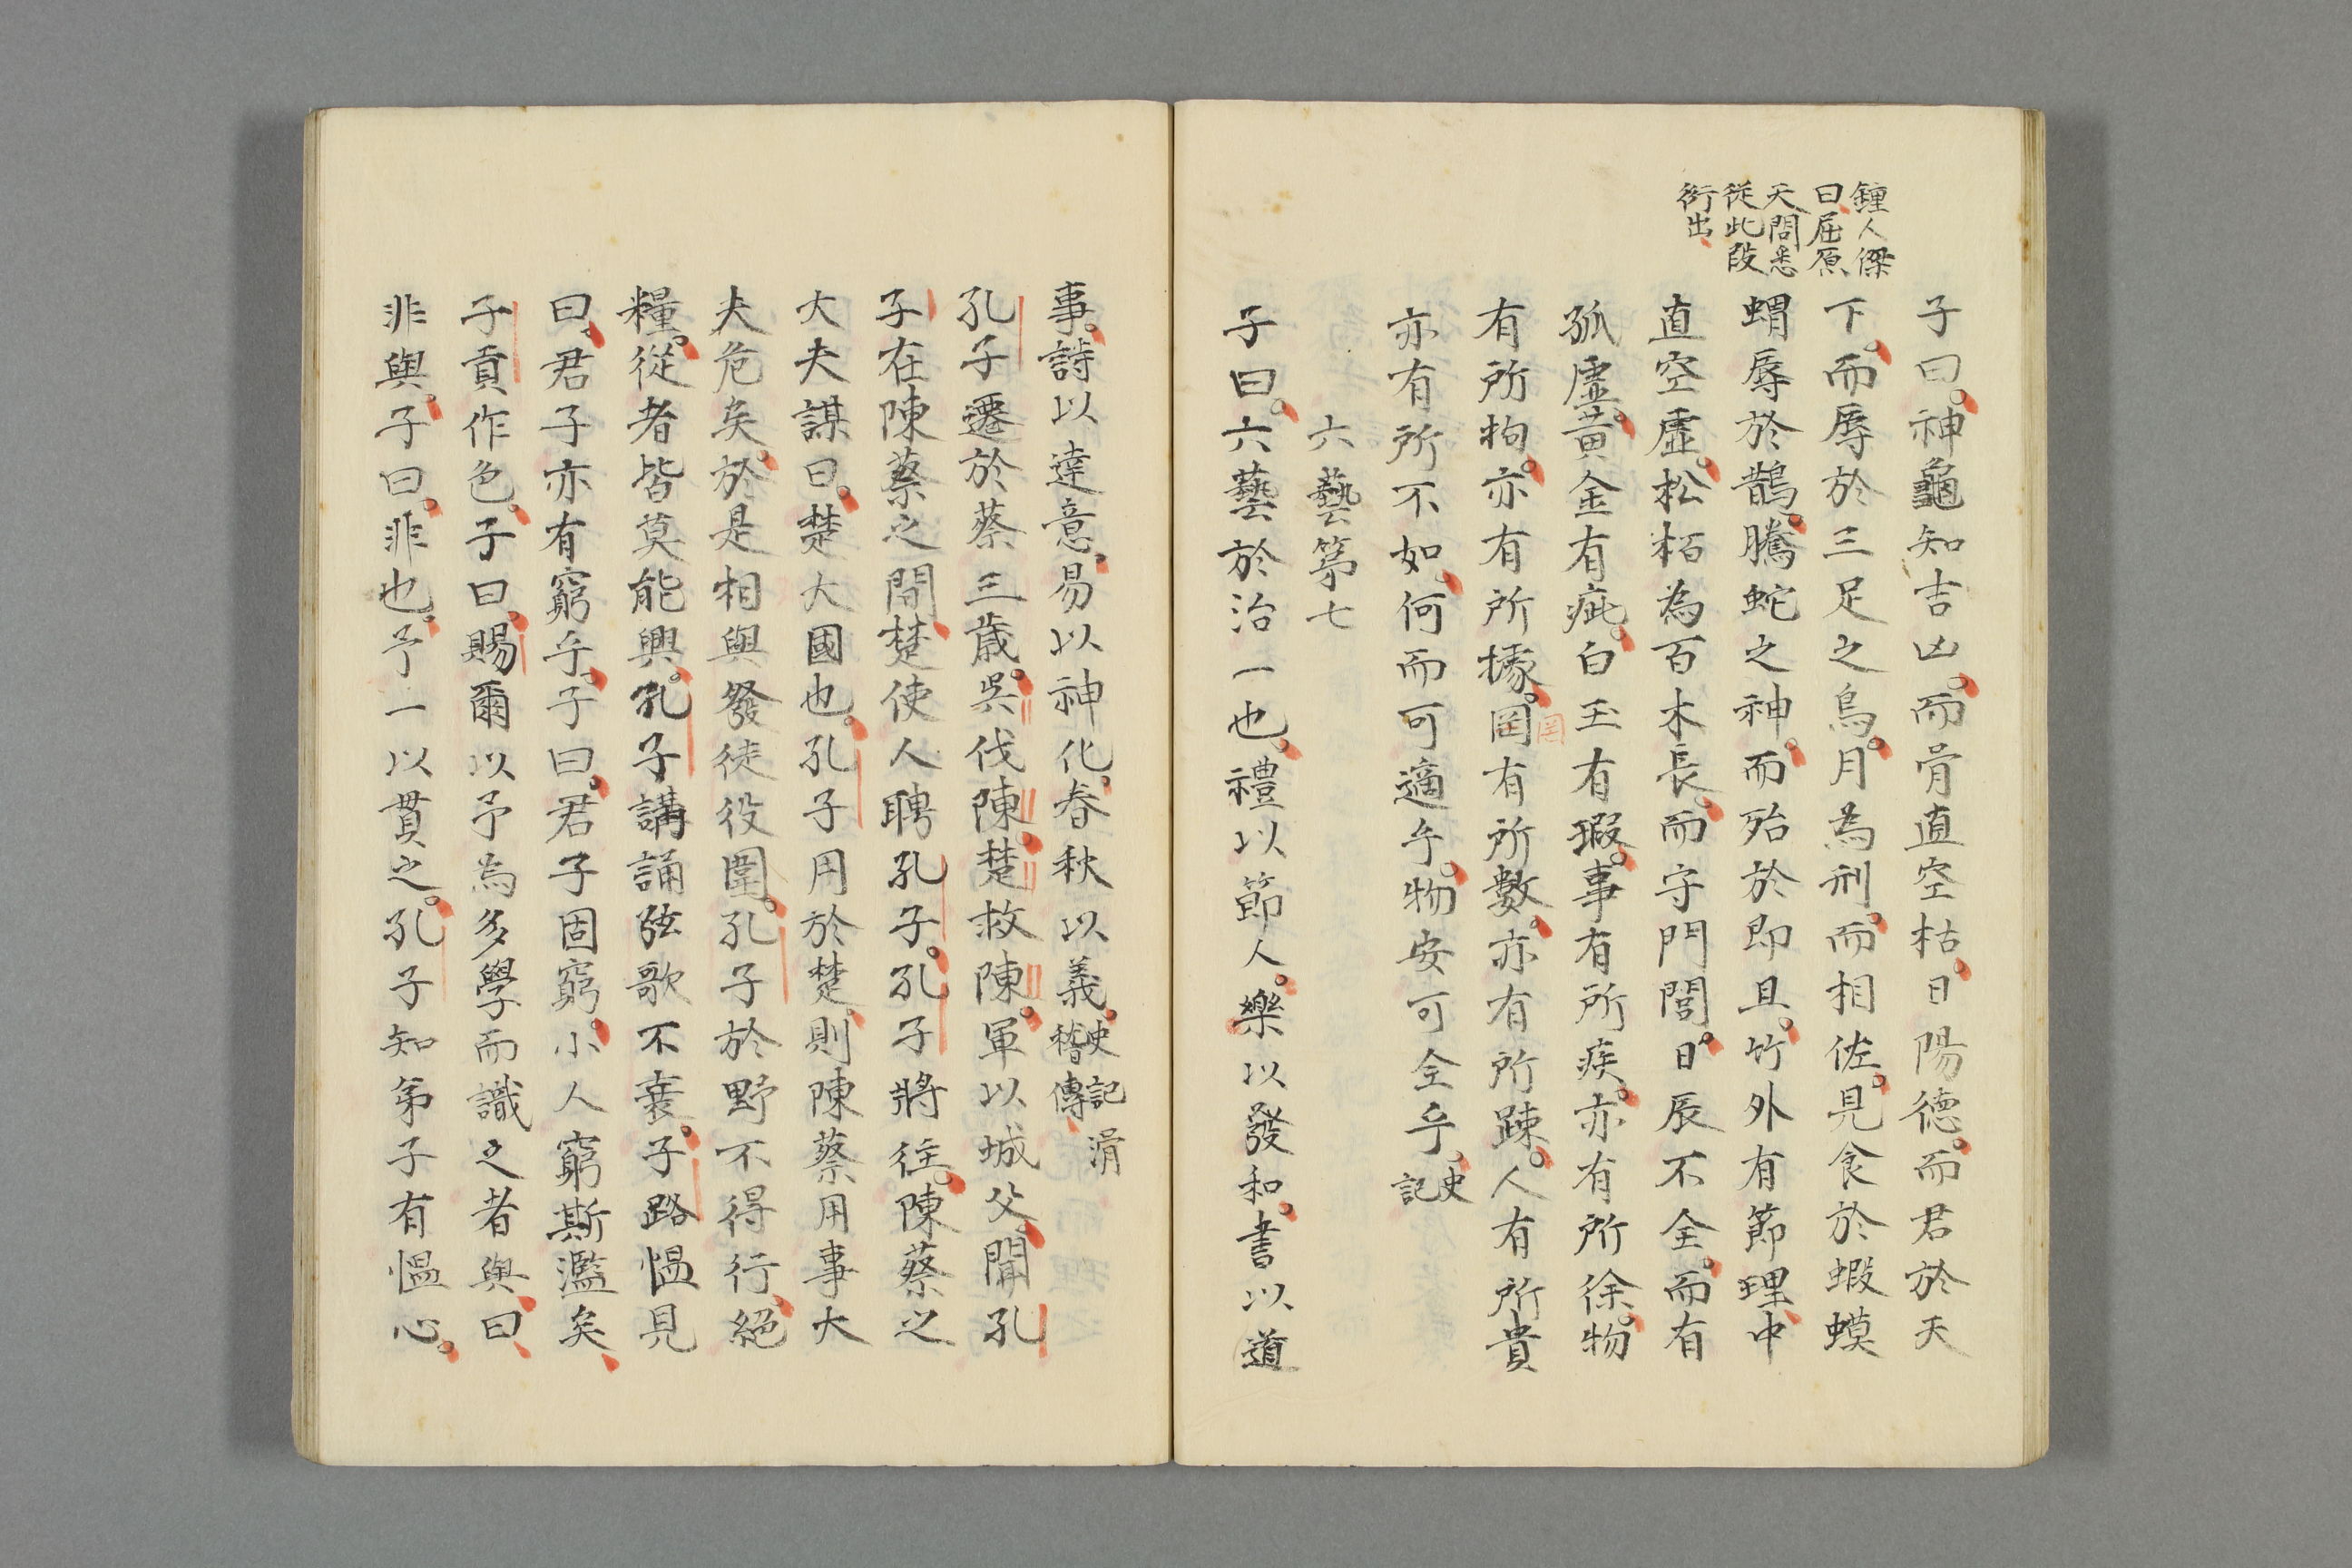 鍾人傑
曰屈原
天問悉
從此段
衍出
子曰。神龜知吉凶。而骨直空枯。日陽德。而君於天
下。而辱於三足之烏。月為刑。而相佐。見食於蝦蟆
蝟辱於鵲。騰蛇之神。而殆於即且。竹外有節理。中
直空虛。松栢為百木長。而守門閭。日辰不全。而有
孤虛。黃金有疵。白玉有瑕。事有所疾。亦有所徐。物
有所拘。亦有所據。罔有所數。亦有所踈。人有所貴
亦有所不如。何而可適乎。物安可全乎。史記
六藝第七
子曰。六藝於治一也。禮以節人。樂以發和。書以道
事。詩以達意。易以神化。春秋以義。史記滑稽傳
孔子遷於蔡三歲。吳伐陳。楚救陳。軍以城父。聞孔
子在陳蔡之間。楚使人聘孔子。孔子將往。陳蔡之
大夫謀曰。楚大國也。孔子用於楚。則陳蔡用事大
夫危矣。於是相與發徒役圍。孔子於野不得行。絕
糧。從者皆莫能興。孔子講誦弦歌不衰。子路慍見
曰。君子亦有窮乎。子曰。君子固窮。小人窮斯濫矣。
子貢作色。子曰。賜爾以予為多學而識之者與。曰。
非與。子曰。非也。予一以貫之。孔子知弟子有慍心。